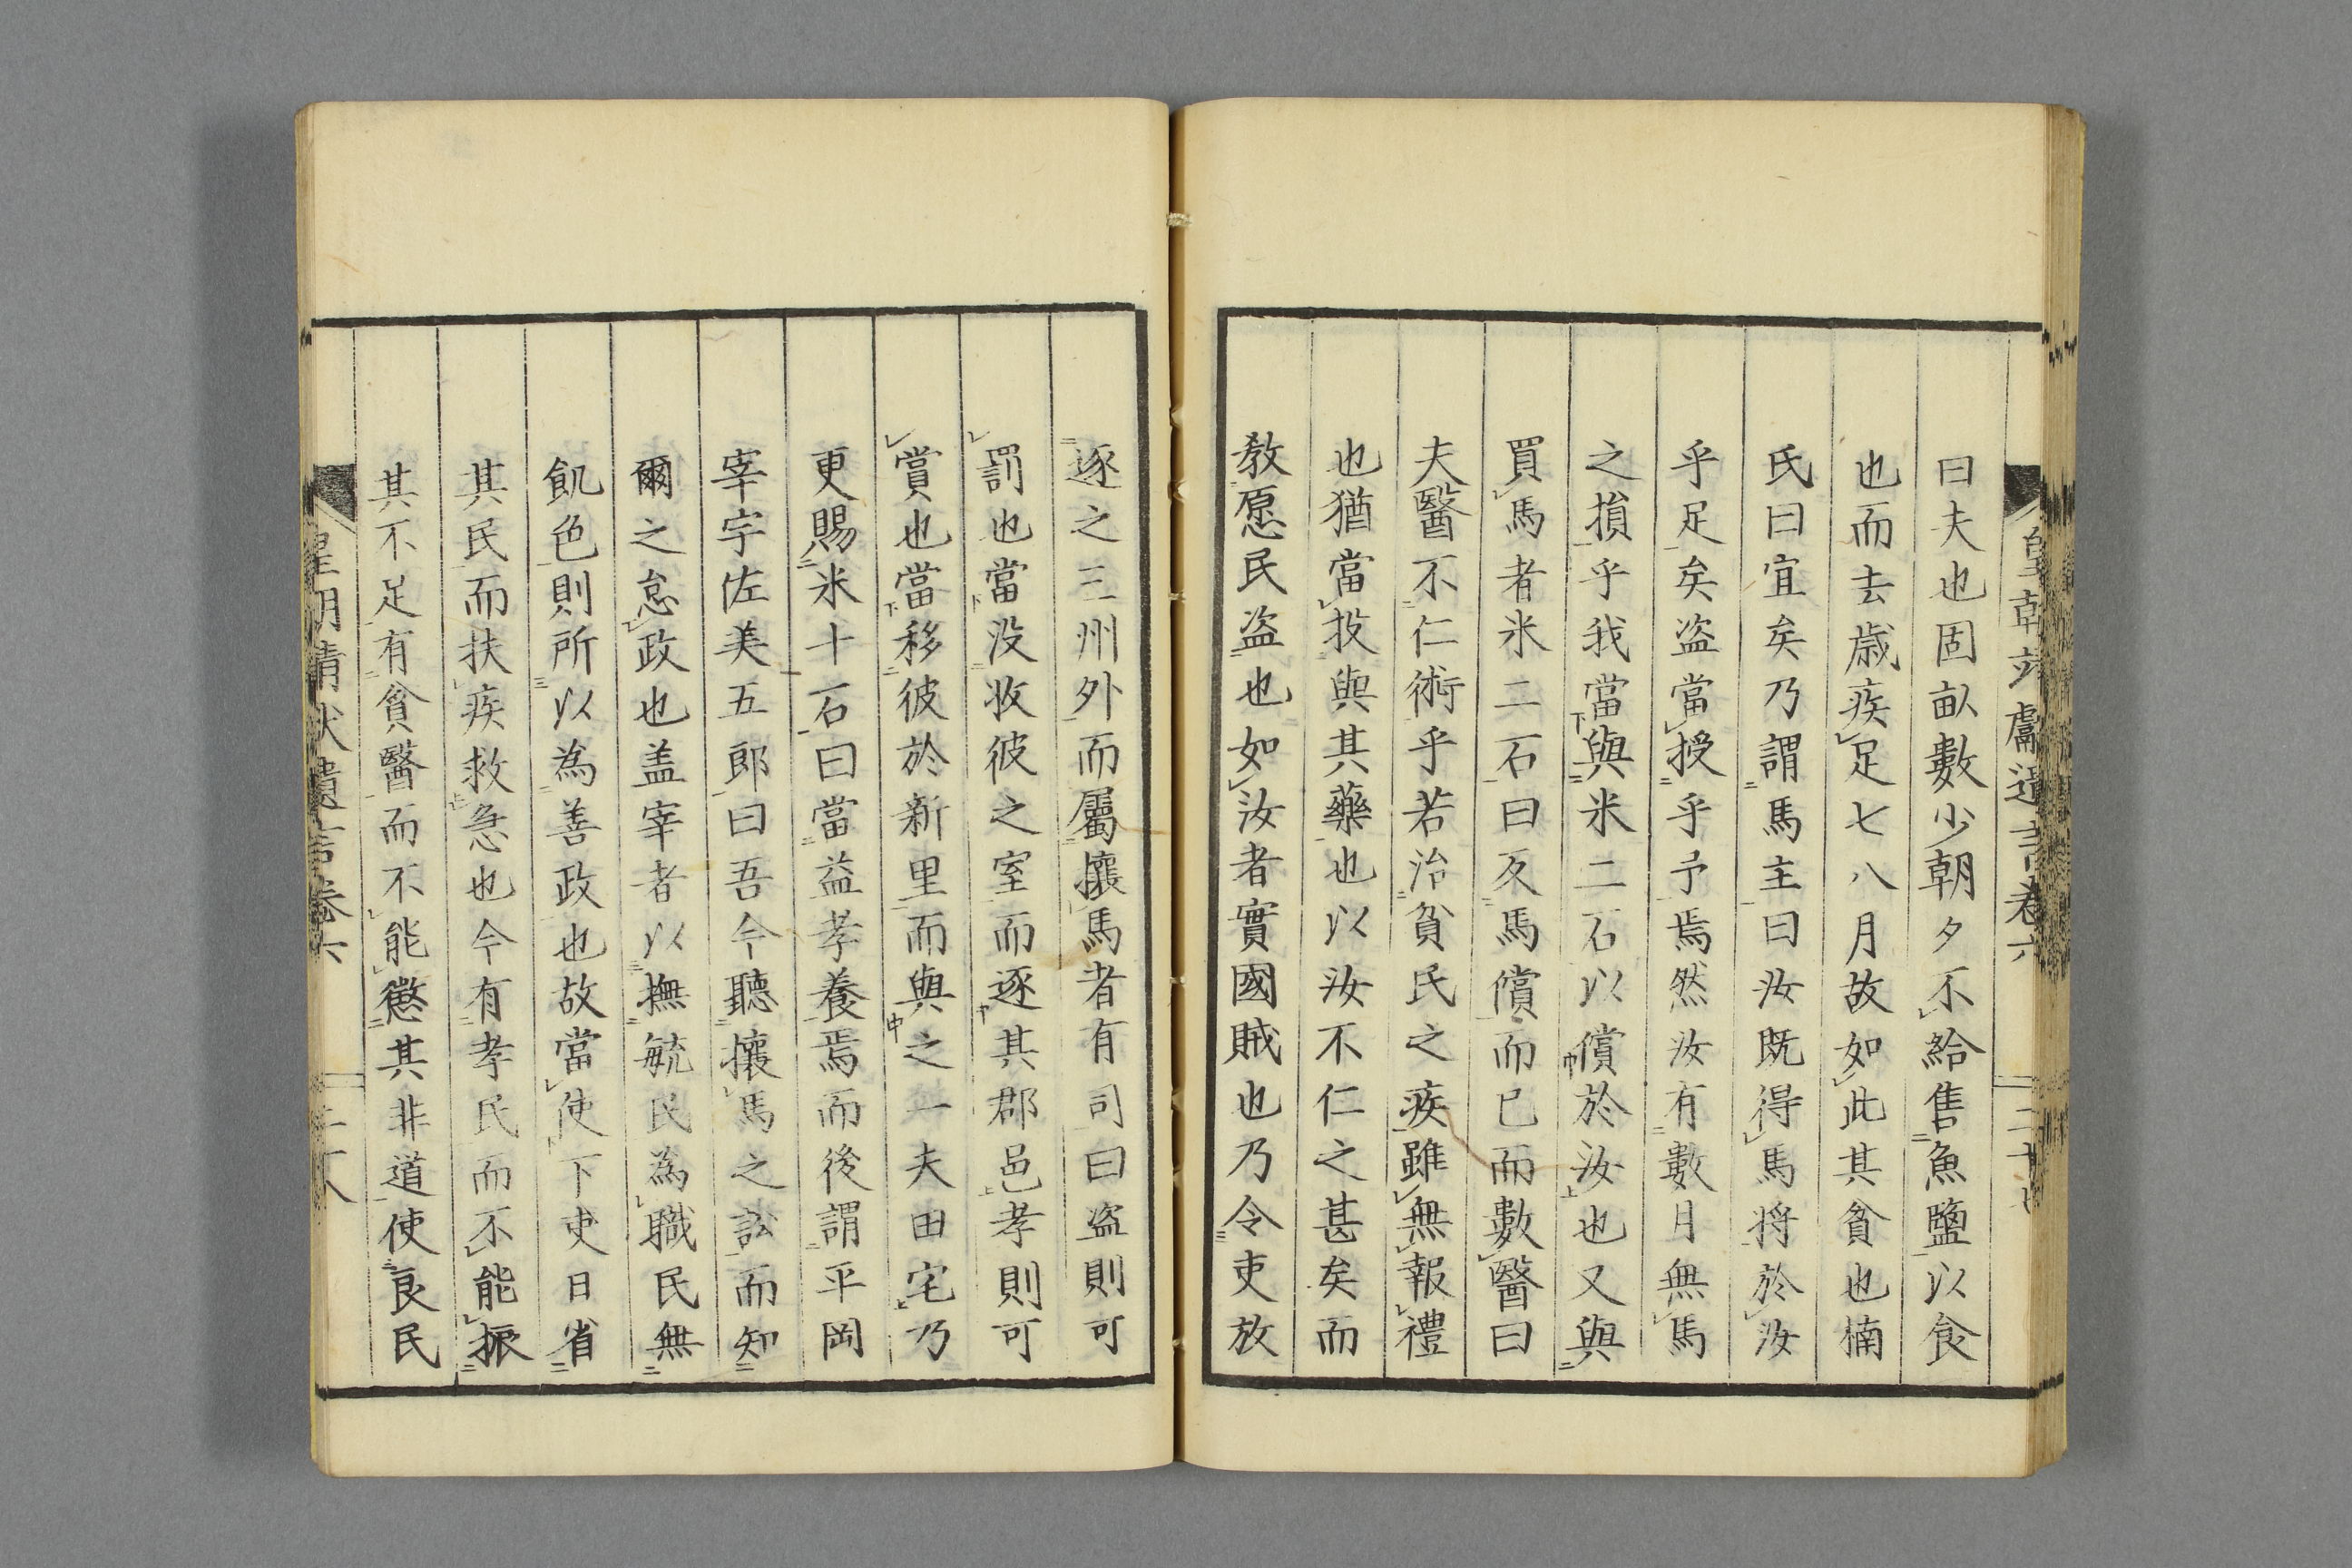 曰夫也固畝數少朝夕不給售魚鹽以食
也而去歲疾足七八月故如此其貧也楠
氏曰宜矣乃謂馬主曰汝既得馬將於汝
乎足矣盗當授乎予焉然汝有數月無馬
之損乎我當與米二石以償於汝也又與
買馬者米二石曰反馬償而已而數醫曰
夫醫不仁術乎若治貧民之疾雖無報禮
也猶當投與其藥也以汝不仁之甚矣而
教愿民盗也如汝者實國賊也乃令吏放
逐之三州外而屬攘馬者有司曰盗則可
罰也當没收彼之室而逐其郡邑孝則可
賞也當移彼於新里而與之一夫田宅乃
更賜米十石曰當益孝養焉而後謂平岡
宰宇佐美五郎曰吾今聽攘馬之訟而知
爾之怠政也盖宰者以撫毓民為職民無
飢色則所以為善政也故當使下吏日省
其民而扶疾救急也今有孝民而不能振
其不足有貧醫而不能懲其非道使良民